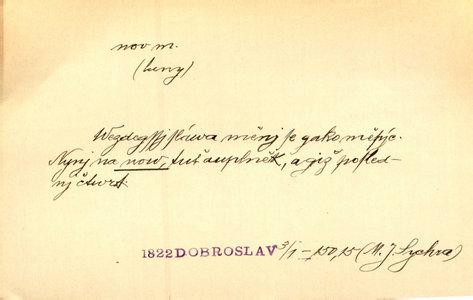 nov m.
(luny)
Wezdegssj sláwa měnj se gako měsýc.
Nynj na now, tuť auplněk, a giž posled-
nj čtwrt
1822 DOBROSLAV 3/1 – 150,15 (M. J. Sychra)